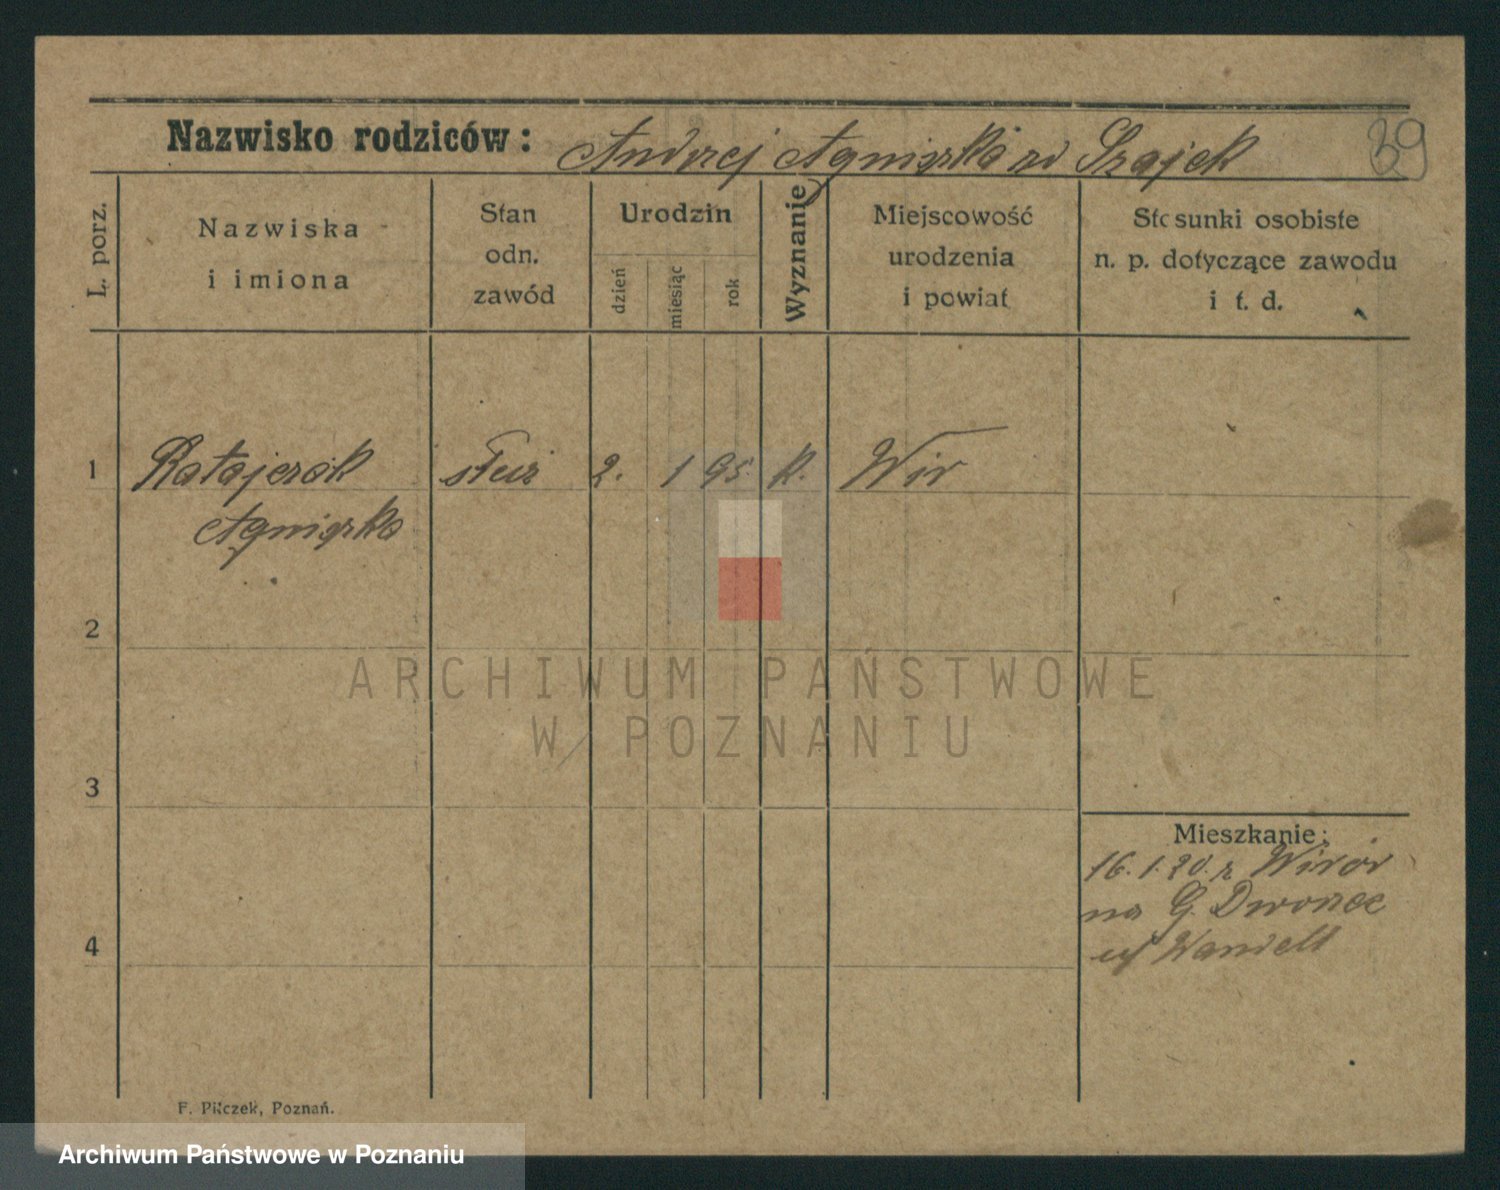 Nazwisko rodziców: Andrzej Agnieszka zd Szajek 39
L. porz.
Nazwiska i imiona
Stan odn. zawód
Urodzin
dzień miesiąc rok
Wyznanie
Miejscowość urodzenia i powiat
Stosunki osobiste n. p. dotyczące zawodu i t. d.
1 Ratajczak służ 2. 1 95. k. Wir
Agnieszka
2
ARCHIWUM PAŃSTWOWE
W POZNANIU
3
Mieszkanie:
16.1.20. z Wirów
na G. Dworzec
4
F. Pilczek, Poznań.
Archiwum Państwowe w Poznaniu